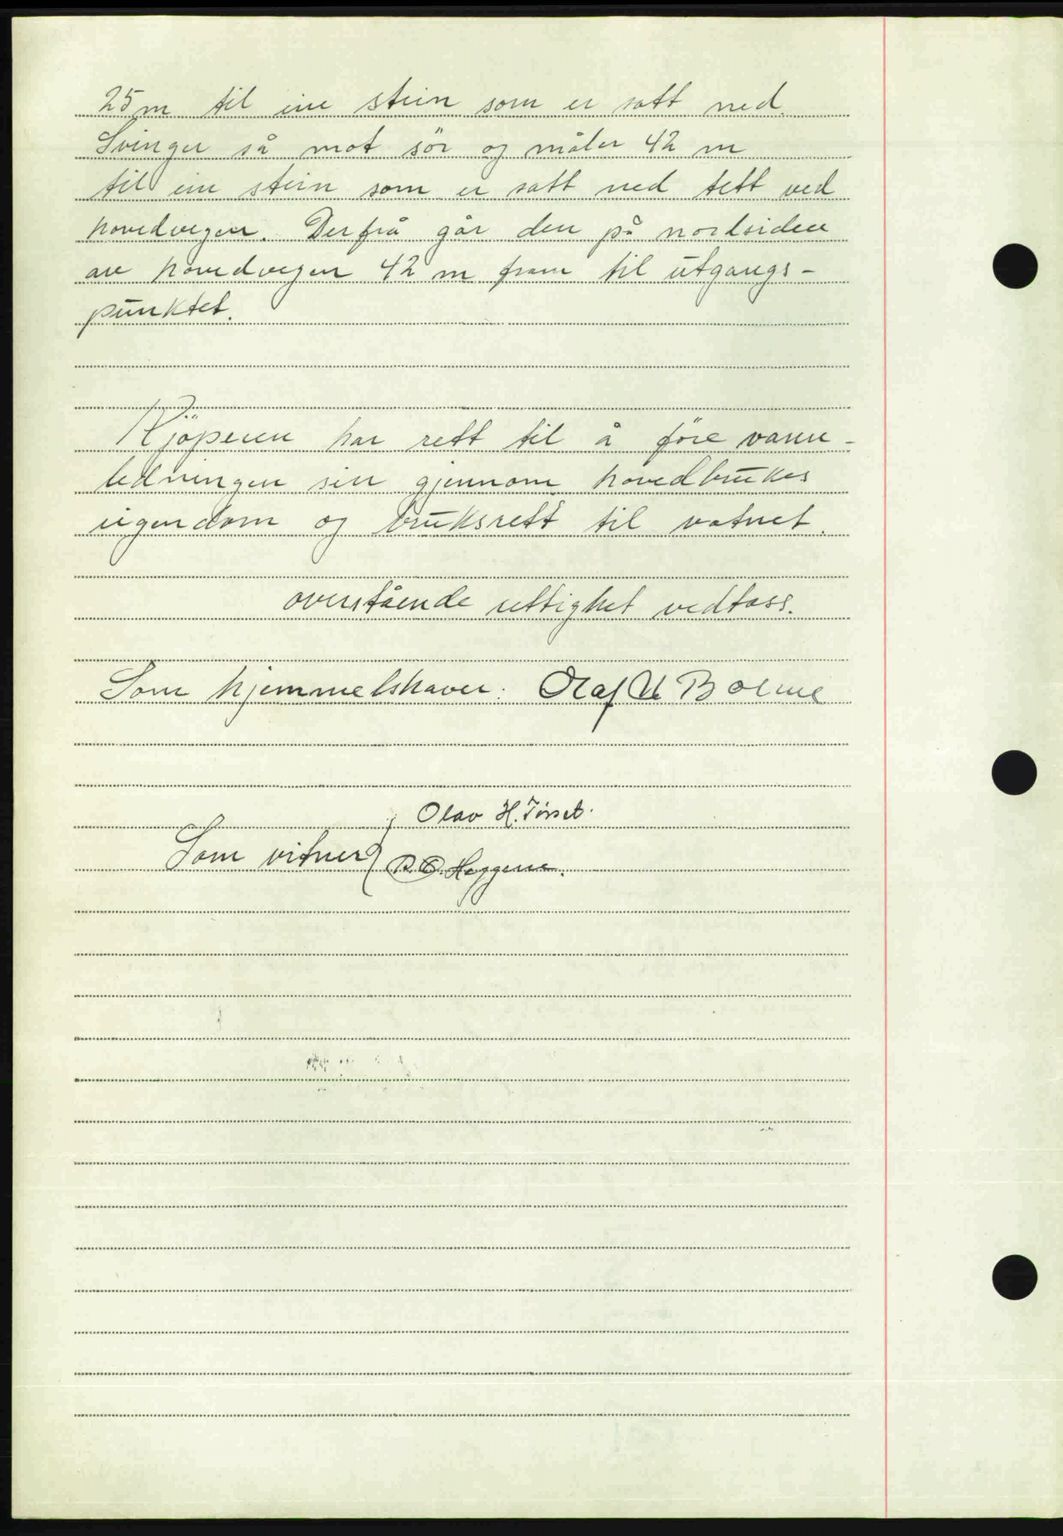 25 m til ein stein som er satt ned.
Svinger så mot sör og måler 42 m
til ein stein som er satt ned tett ved
hovedvegen. Derfrå går den på nordsiden
av hovedvegen 42 m fram til utgangs-
punktet.
Kjöperen har rett til å före vann-
ledningen sin gjennom hovedbrukes
eigendom og bruksrett til vatnet.
overstående rettighet vedtass.
Som hjemmelshaver: Olaf U Bolme
Olav H. Tørset.
Som vitner